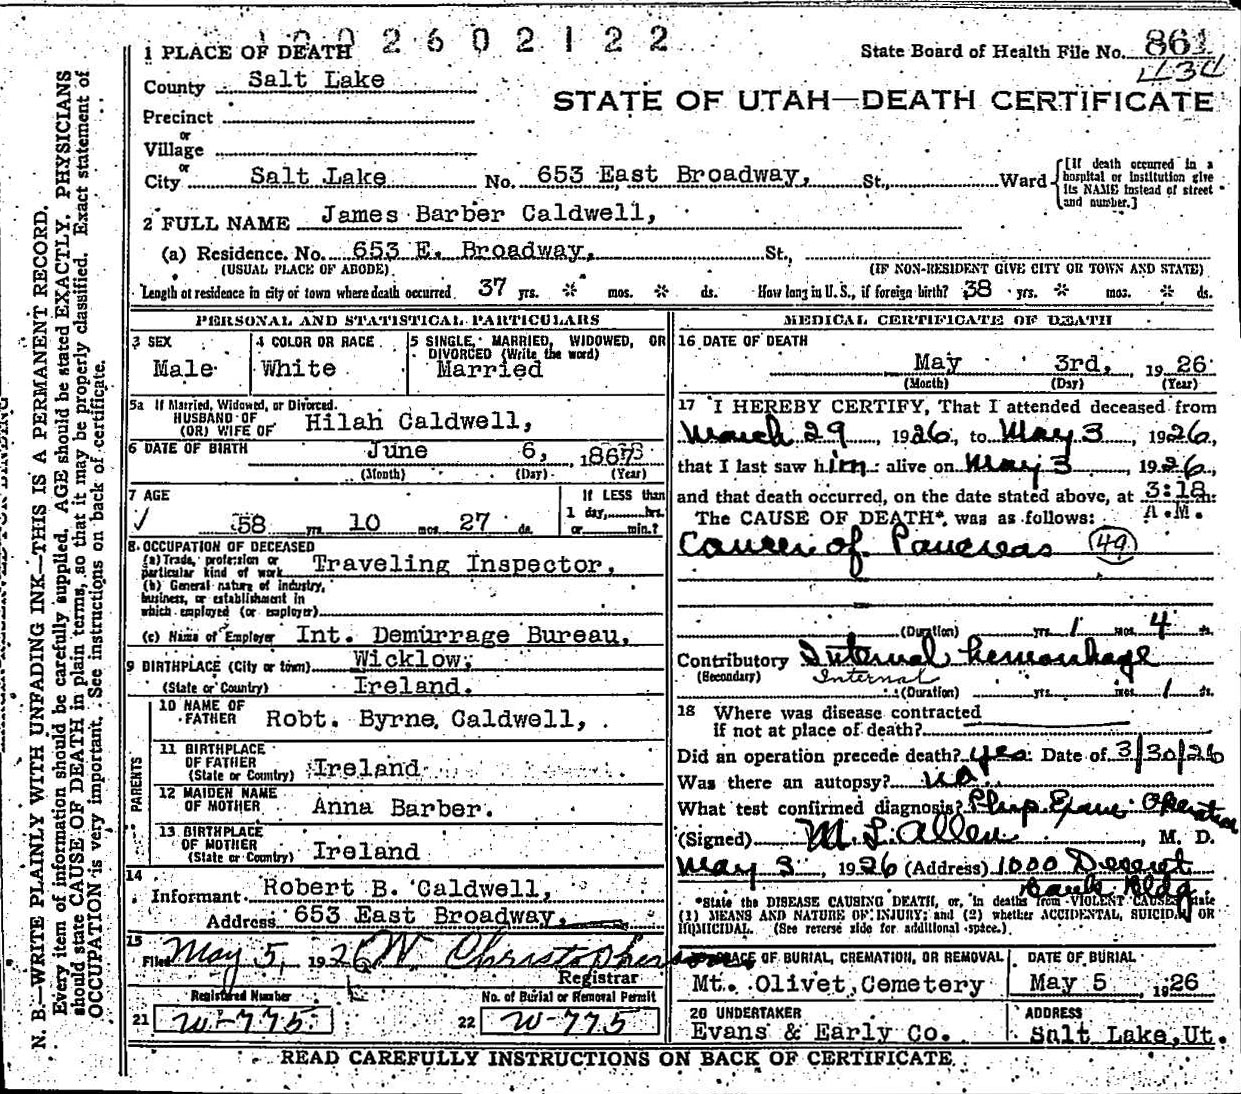 1 0 0 2 6 0 2 1 2 2
1 PLACE OF DEATH
State Board of Health File No. 861
434
County Salt Lake
STATE OF UTAH—DEATH CERTIFICATE
Precinct
or
Village
or
City Salt Lake No. 653 East Broadway, St., Ward
[If death occurred in a hospital or institution give its NAME instead of street and number.]
2 FULL NAME James Barber Caldwell,
(a) Residence. No. 653 E. Broadway, St.,
(USUAL PLACE OF ABODE) (IF NON-RESIDENT GIVE CITY OR TOWN AND STATE)
Length of residence in city or town where death occurred 37 yrs. * mos. * ds. How long in U.S., if foreign birth? 38 yrs. * mos. * ds.
PERSONAL AND STATISTICAL PARTICULARS
3 SEX
Male
4 COLOR OR RACE
White
5 SINGLE, MARRIED, WIDOWED, OR
DIVORCED (Write the word)
Married
5a If Married, Widowed, or Divorced.
HUSBAND OF
(OR) WIFE OF Hilah Caldwell,
6 DATE OF BIRTH June 6, 1867
(Month) (Day) (Year)
7 AGE
✓ 58 yrs. 10 mos. 27 ds.
If LESS than
1 day, hrs.
or min.?
8 OCCUPATION OF DECEASED
(a) Trade, profession or
particular kind of work Traveling Inspector,
(b) General nature of industry,
business, or establishment in
which employed (or employer)
(c) Name of Employer Int. Demurrage Bureau,
9 BIRTHPLACE (City or town) Wicklow,
(State or Country) Ireland.
PARENTS
10 NAME OF
FATHER Robt. Byrne Caldwell,
11 BIRTHPLACE
OF FATHER
(State or Country) Ireland
12 MAIDEN NAME
OF MOTHER Anna Barber.
13 BIRTHPLACE
OF MOTHER
(State or Country) Ireland
14
Informant Robert B. Caldwell,
Address 653 East Broadway,
15
Filed May 5, 1926 W Christophersen
Registrar
Registered Number
21 W-775
No. of Burial or Removal Permit
22 W-775
MEDICAL CERTIFICATE OF DEATH
16 DATE OF DEATH
May 3rd, 1926
(Month) (Day) (Year)
17 I HEREBY CERTIFY, That I attended deceased from
March 29, 1926, to May 3, 1926,
that I last saw him alive on May 3, 1926,
and that death occurred, on the date stated above, at 3:18 m.
A.M.
The CAUSE OF DEATH* was as follows:
Cancer of Pancreas (49)
(Duration) yrs. 1 mos. 4 ds.
Contributory Internal hemorrhage
(Secondary) Internal
(Duration) yrs. mos. 1 ds.
18 Where was disease contracted
If not at place of death?
Did an operation precede death? yes. Date of 3/30/26
Was there an autopsy? no
What test confirmed diagnosis? Phys. Exam. Operation
(Signed) M L Allen, M. D.
May 3, 1926 (Address) 1000 Deseret
Bank Bldg
*State the DISEASE CAUSING DEATH, or, in deaths from VIOLENT CAUSES, state
(1) MEANS AND NATURE OF INJURY; and (2) whether ACCIDENTAL, SUICIDAL OR
HOMICIDAL. (See reverse side for additional space.)
19 PLACE OF BURIAL, CREMATION, OR REMOVAL
Mt. Olivet Cemetery
DATE OF BURIAL
May 5 1926
20 UNDERTAKER
Evans & Early Co.
ADDRESS
Salt Lake, Ut.
READ CAREFULLY INSTRUCTIONS ON BACK OF CERTIFICATE.
N. B.—WRITE PLAINLY WITH UNFADING INK—THIS IS A PERMANENT RECORD.
Every item of information should be carefully supplied. AGE should be stated EXACTLY. PHYSICIANS
should state CAUSE OF DEATH in plain terms, so that it may be properly classified. Exact statement of
OCCUPATION is very important. See instructions on back of certificate.